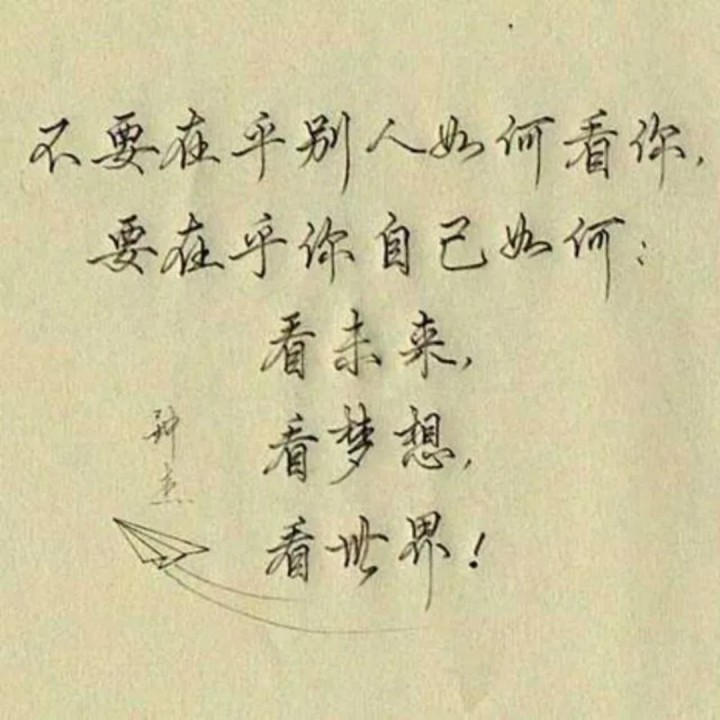 不要在乎别人如何看你,
要在乎你自己如何:
看未来,
看梦想,
看世界!